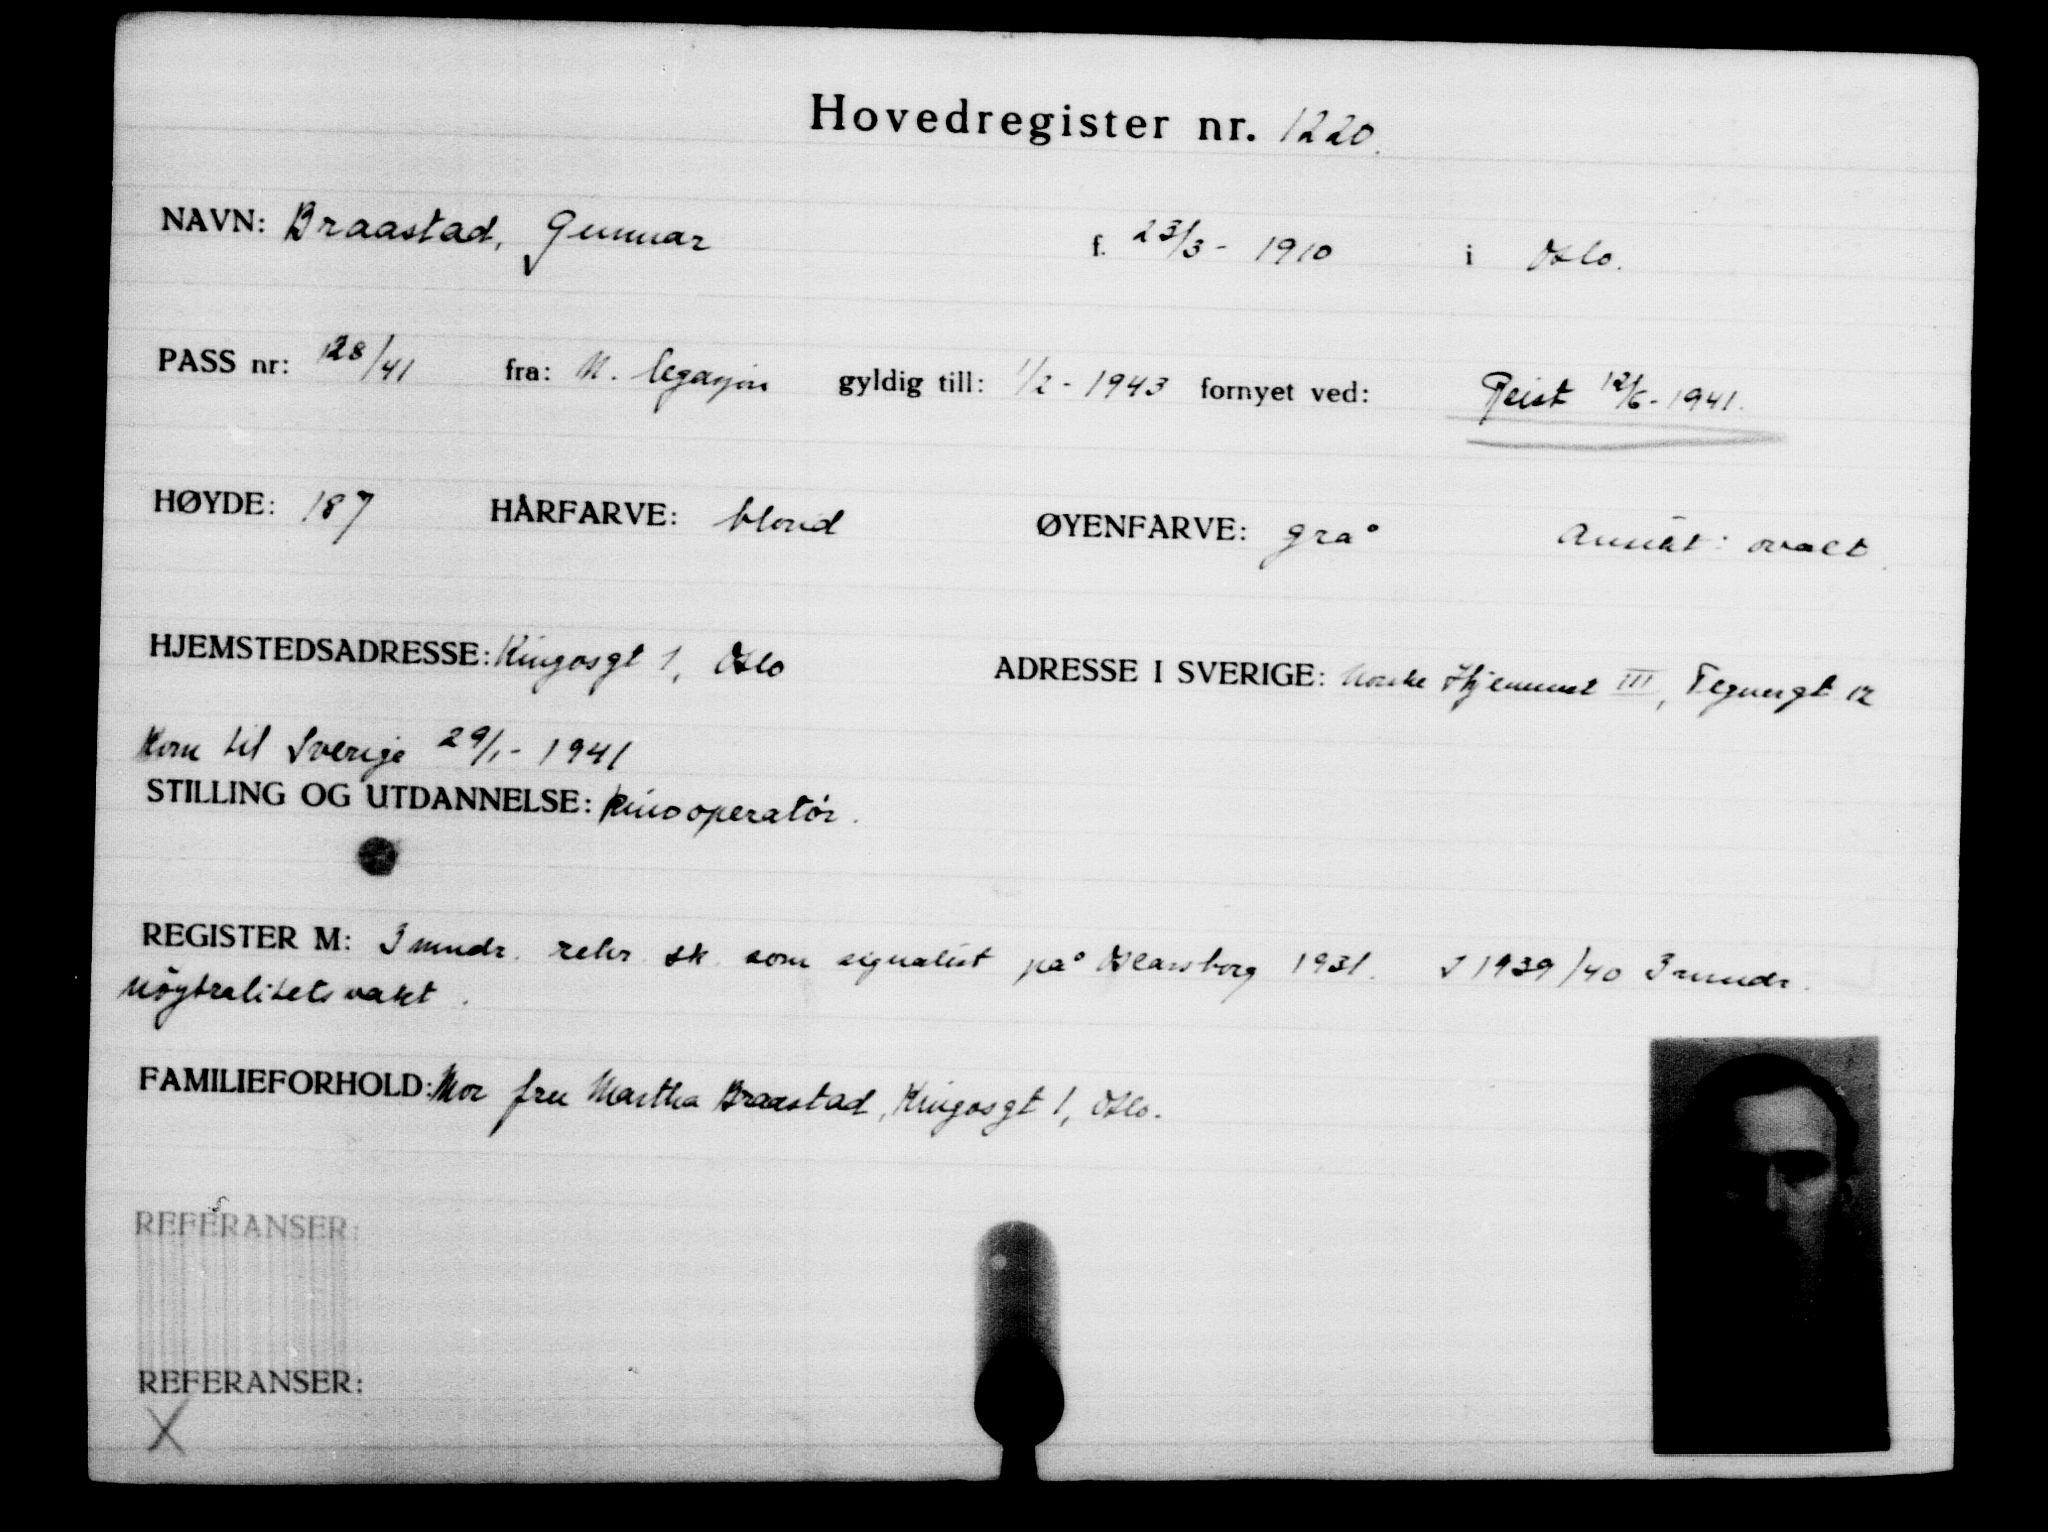 Hovedregister nr. 1220.
NAVN: Braastad, Gunnar f. 23/3 - 1910 i Oslo.
PASS nr: 128/41 fra: N. legasjon gyldig till: 1/2 - 1943 fornyet ved: Reist 12/6 - 1941.
HØYDE: 187 HÅRFARVE: blond ØYENFARVE: grå Ansikt: ovalt.
HJEMSTEDSADRESSE: Kingosgt 1, Oslo ADRESSE I SVERIGE: Norske Hjemmet III, Tegnergt 12
Kom til Sverige 29/1 - 1941
STILLING OG UTDANNELSE: kinooperatör.
REGISTER M: 3 mndr. rekr. sk. som signalist på Oscarsborg 1931. I 1939/40 3 mndr.
nöytralitetsvakt.
FAMILIEFORHOLD: Mor fru Martha Braastad, Kingosgt 1, Oslo.
REFERANSER:
REFERANSER:
X